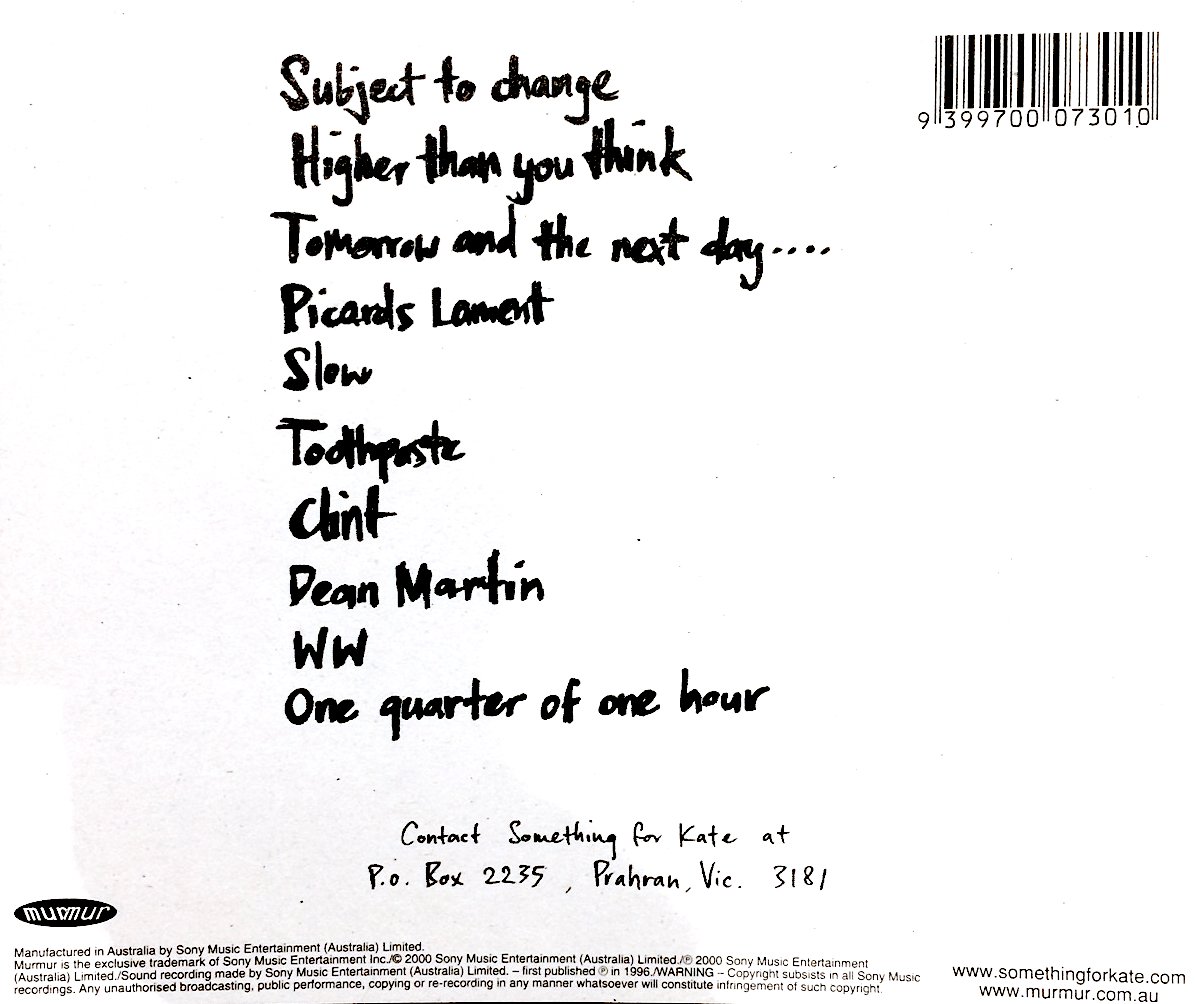 Subject to change
Higher than you think
Tomorrow and the next day....
Picards Lament
Slow
Toothpaste
Clint
Dean Martin
WW
One quarter of one hour
9 399700 073010
Contact Something for Kate at
P.o. Box 2235 , Prahran, Vic. 3181
murmur
Manufactured in Australia by Sony Music Entertainment (Australia) Limited.
Murmur is the exclusive trademark of Sony Music Entertainment Inc./© 2000 Sony Music Entertainment (Australia) Limited./℗ 2000 Sony Music Entertainment
(Australia) Limited./Sound recording made by Sony Music Entertainment (Australia) Limited. – first published ℗ in 1996./WARNING – Copyright subsists in all Sony Music
recordings. Any unauthorised broadcasting, public performance, copying or re-recording in any manner whatsoever will constitute infringement of such copyright.
www.somethingforkate.com
www.murmur.com.au